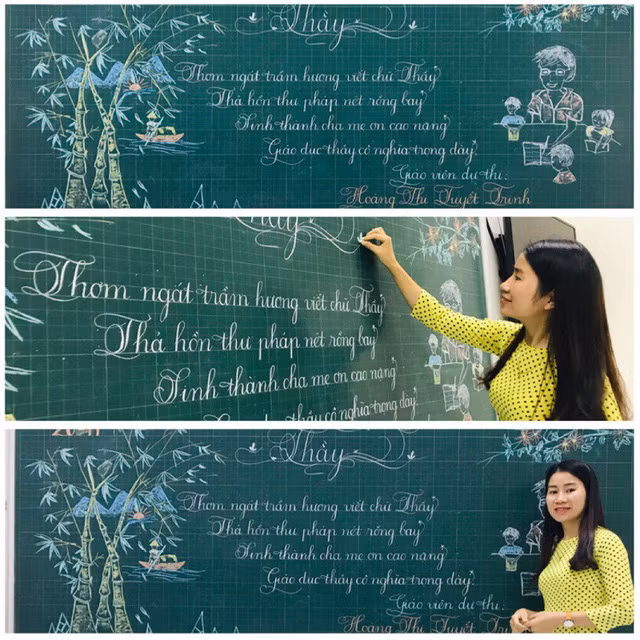 Thầy
Thơm ngát trầm hương viết chữ Thầy
Thả hồn thư pháp nét rồng bay
Sinh thành cha mẹ ơn cao nặng
Giáo dục thầy cô nghĩa trọng dày
Giáo viên dự thi:
Hoàng Thị Tuyết Trinh
Thầy
Thơm ngát trầm hương viết chữ Thầy
Thả hồn thư pháp nét rồng bay
Sinh thành cha mẹ ơn cao nặng
thầy cô nghĩa trọng dày
Thầy
Thơm ngát trầm hương viết chữ Thầy
Thả hồn thư pháp nét rồng bay
Sinh thành cha mẹ ơn cao nặng
Giáo dục thầy cô nghĩa trọng dày
Giáo viên dự thi:
Hoàng Thị Tuyết